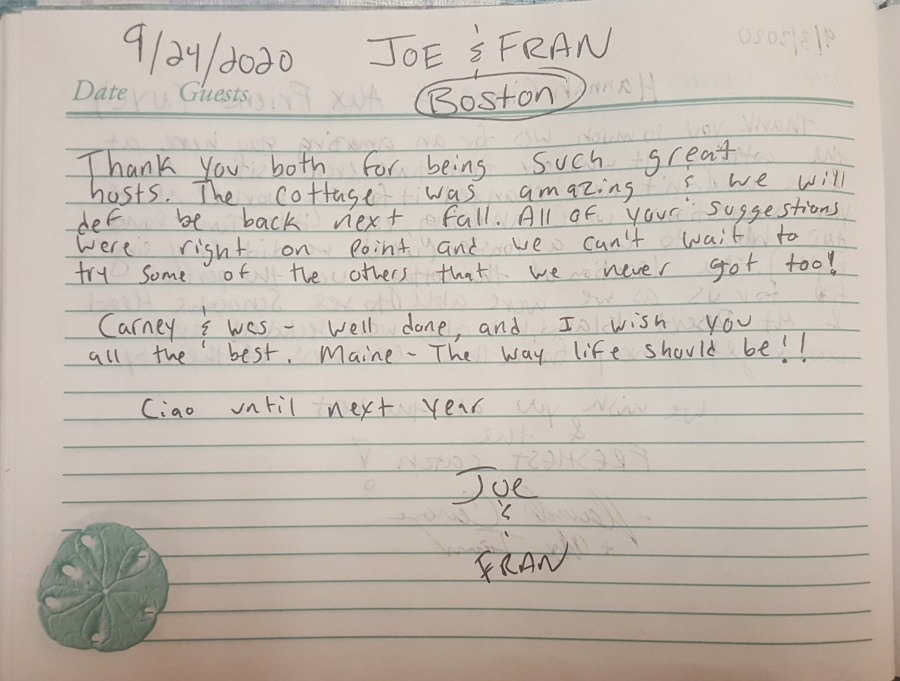 9/24/2020 JOE & FRAN
Date Guests Boston
Thank you both for being such great
hosts. The cottage was amazing & we will
def be back next fall. All of your suggestions
were right on point and we can't wait to
try some of the others that we never got too!
Carney & Wes - well done, and I wish you
all the best. Maine - The way life should be!!
Ciao until next year
Joe
&
FRAN